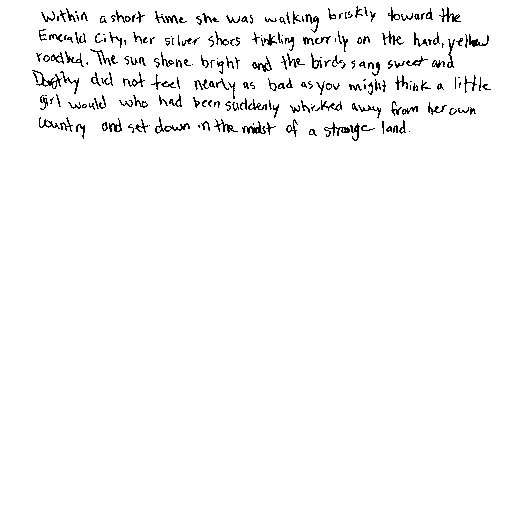 Within a short time she was walking briskly toward the
Emerald City, her silver shoes tinkling merrily on the hard, yellow
roadbed. The sun shone bright and the birds sang sweet and
Dorothy did not feel nearly as bad as you might think a little
girl would who had been suddenly whisked away from her own
country and set down in the midst of a strange land.